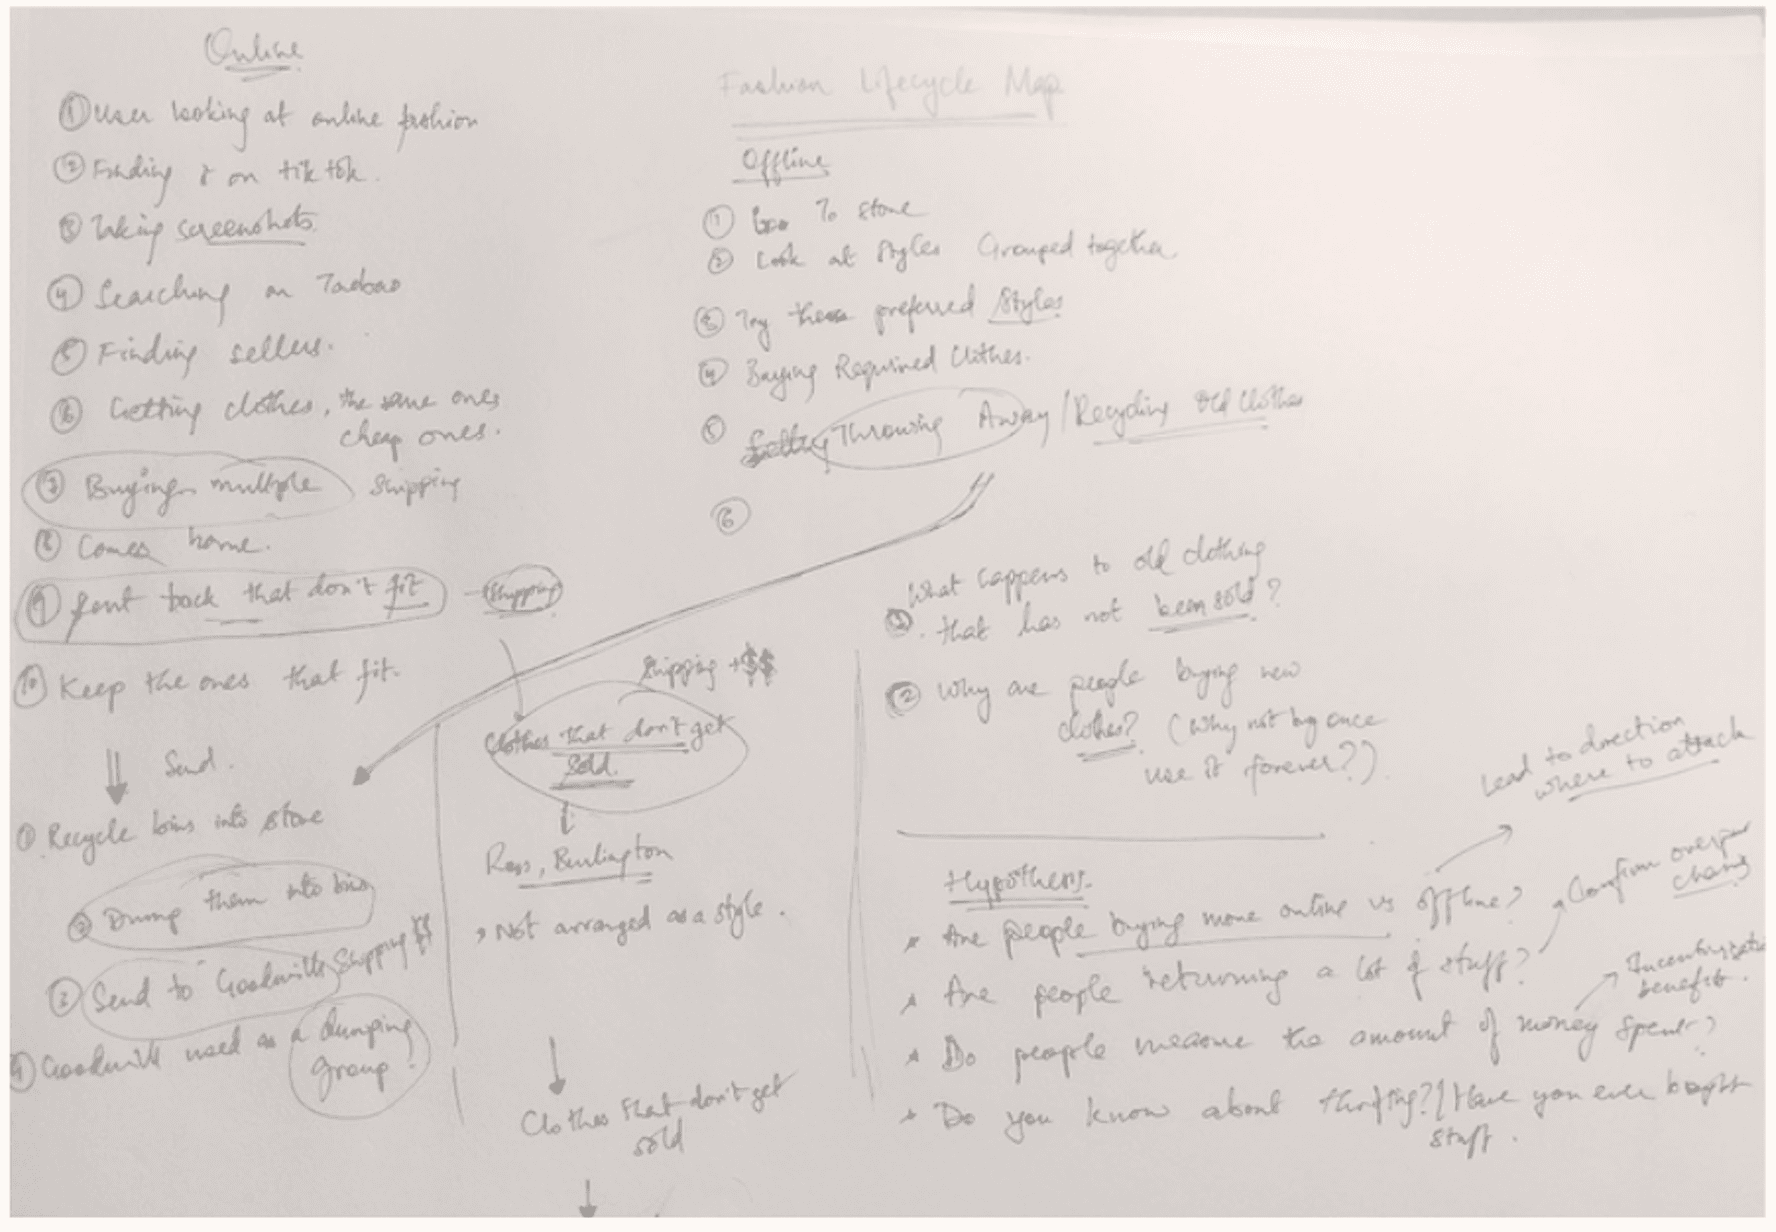 Online
① User looking at online fashion
② Finding it on tik tok.
③ Taking screenshots.
④ Searching on Taobao
⑤ Finding sellers.
⑥ Getting clothes, the same ones
cheap ones.
⑦ Buying multiple shipping
⑧ Comes home.
⑨ Sent back that don't fit - Shipping
⑩ Keep the ones that fit.
Send.
① Recycle bins into store
② Dump them into bins
③ Send to Goodwills Shipping $$
④ Goodwill used as a dumping
group!
Fashion Lifecycle Map
Offline
① Goo To store
② Look at Styles Grouped together.
③ Try these preferred Styles
④ Buying Required Clothes.
⑤ Throwing Away / Recycling Old Clothes
⑥
Shipping + $$
Clothes that don't get
sold.
Ross, Burlington
Not arranged as a style.
Clothes that don't get
sold
What happens to old clothing
①. that has not been sold?
② Why are people buying new
clothes? (Why not by once
use it forever?)
Hypothesis.
* Are people buying more online vs offline?
Lead to direction
where to attack
* Are people returning a lot of stuff?
Confirm
* Do people measure the amount of money spent?
benefit.
* Do you know about thrifting? / Have you ever bought
stuff.